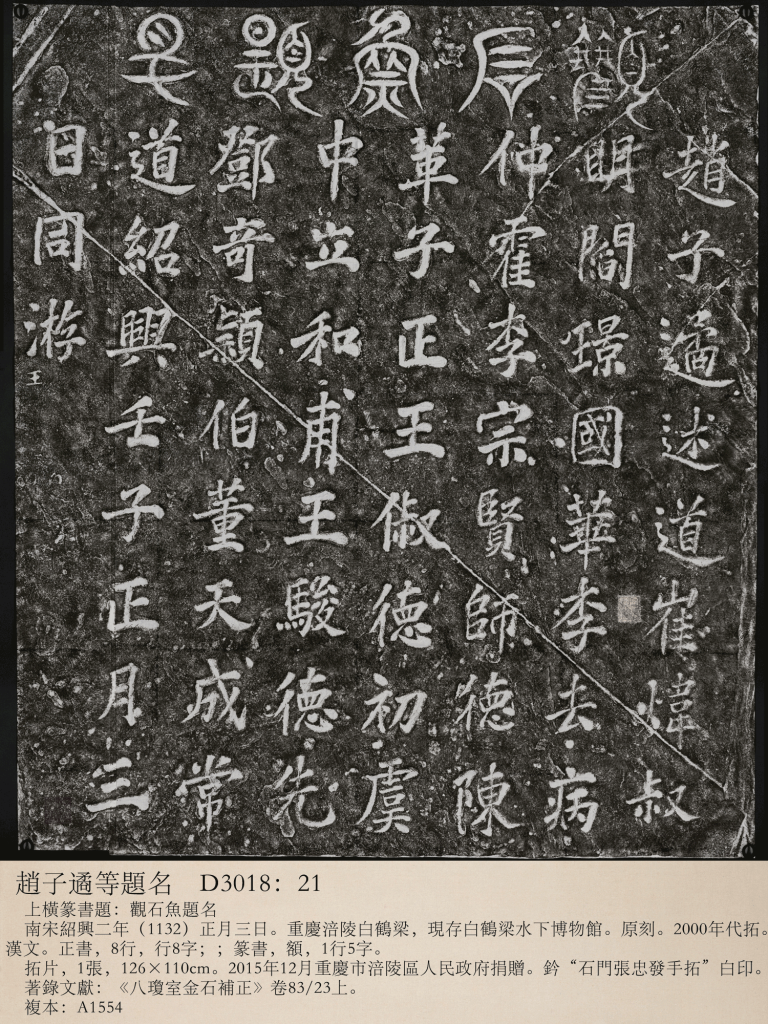 觀石魚題名
趙子遹述道崔煒叔
明閻璟國華李去病
仲霍李宗賢師德陳
革子正王俶德初虞
中立和甫王駿德先
鄧奇穎伯董天成常
道紹興壬子正月三
日同游
王
趙子遹等題名 D3018：21
上橫篆書題：觀石魚題名
南宋紹興二年（1132）正月三日。重慶涪陵白鶴梁，現存白鶴梁水下博物館。原刻。2000年代拓。
漢文。正書，8行，行8字；；篆書，額，1行5字。
拓片，1張，126×110cm。2015年12月重慶市涪陵區人民政府捐贈。鈐“石門張忠發手拓”白印。
著錄文獻：《八瓊室金石補正》卷83/23上。
複本：A1554